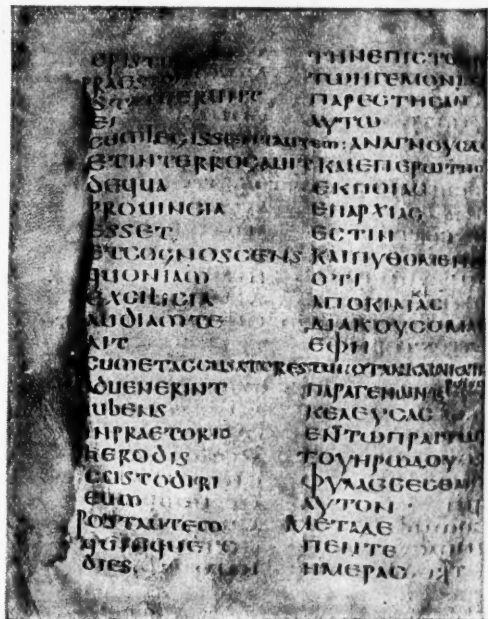 EI
CUMLEGISSENTAUTEM:
ETINTERROGAUIT
DEQUA
PROUINCIA
ESSET
ETCOGNOSCENS
QUONIAM
EXCILICIA
AUDIAMTE
AIT
CUMETACCUSATORESTUI
ADUENERINT
IUBENS
INPRAETORIO
HERODIS
CUSTODIRI
EUM
POSTAUTEM
QUINQUE
DIES.
ΤΗΝΕΠΙCΤΟ
ΤΩΗΓΕΜΟΝΙ
ΠΑΡΕCΤΗCΑΝ
ΑΥΤΩ
ΑΝΑΓΝΟΥC
ΚΑΙΕΠΕΡΩΤΗC
ΕΚΠΟΙΑC
ΕΠΑΡΧΙΑC
ΕCΤΙΝ
ΚΑΙΠΥΘΟΜΕΝ
ΟΤΙ
ΑΠΟΚΙΛΙΚΙΑC
ΔΙΑΚΟΥCΟΜΑΙ
ΕΦΗ
ΟΤΑΝΚΑΙ
ΠΑΡΑΓΕΝΩΝΤΕ
ΚΕΛΕΥCΑC
ΕΝΤΩΠΡΑΙΤΩ
ΤΟΥΗΡΩΔΟΥ
ΦΥΛΑCCΕCΘΑΙ
ΑΥΤΟΝ
ΜΕΤΑΔΕ
ΠΕΝΤΕ
ΗΜΕΡΑC